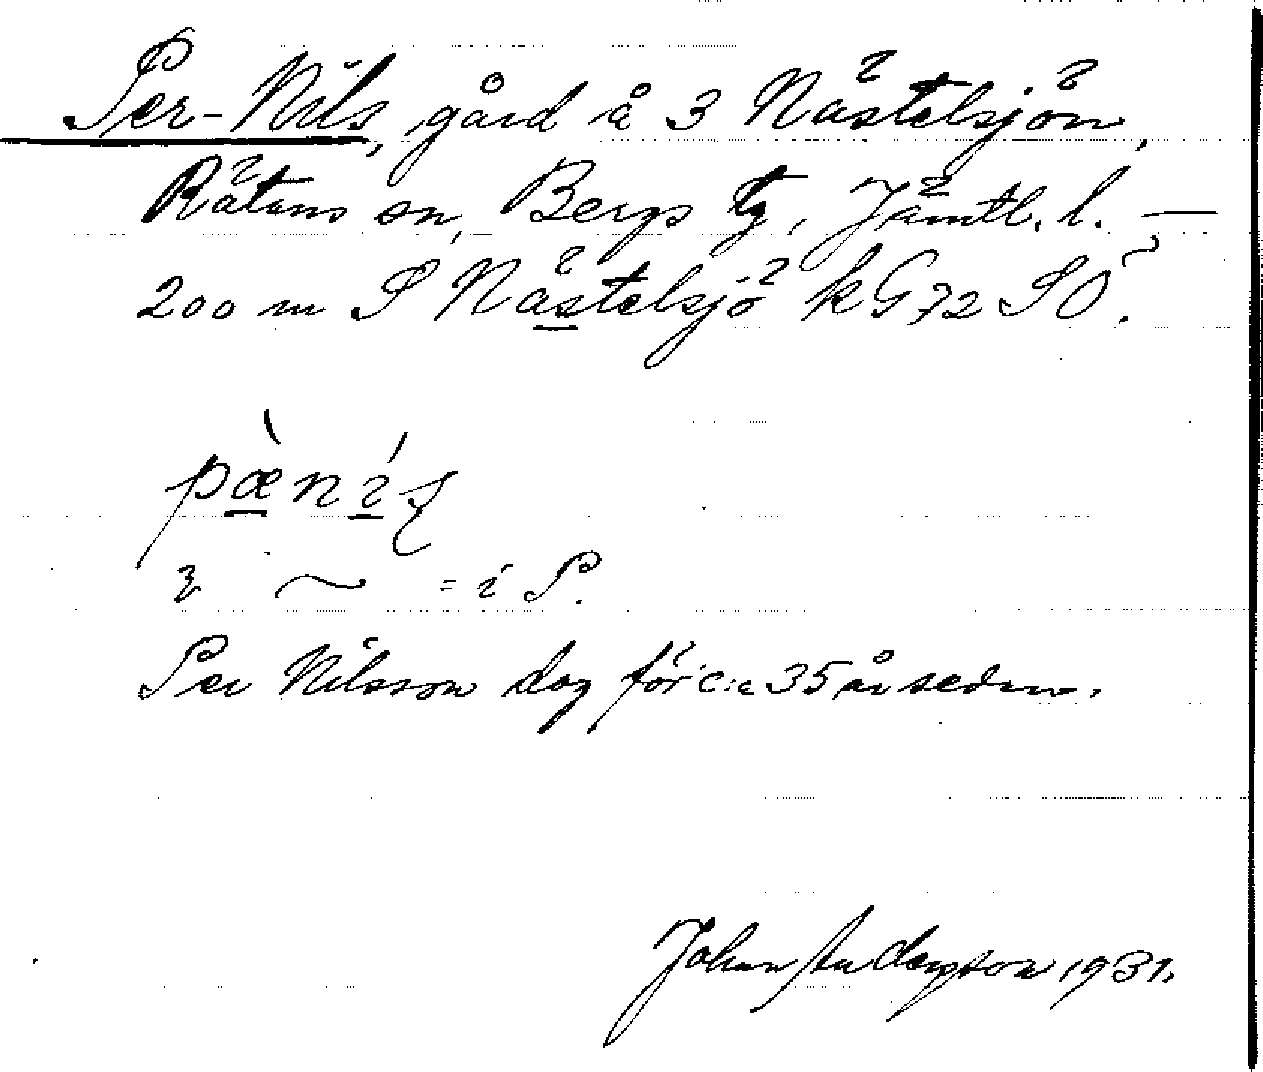 Per-Nils, gård å 3 Nästelsjön,
Rätans sn, Bergs tg, Jämtl. l. —
200 m S Nästelsjö kG72 SO.
pæ̀nís
i ~ = i P.
Per Nilsson dog för c:a 35 år sedan.
Johan Andersson 1931.